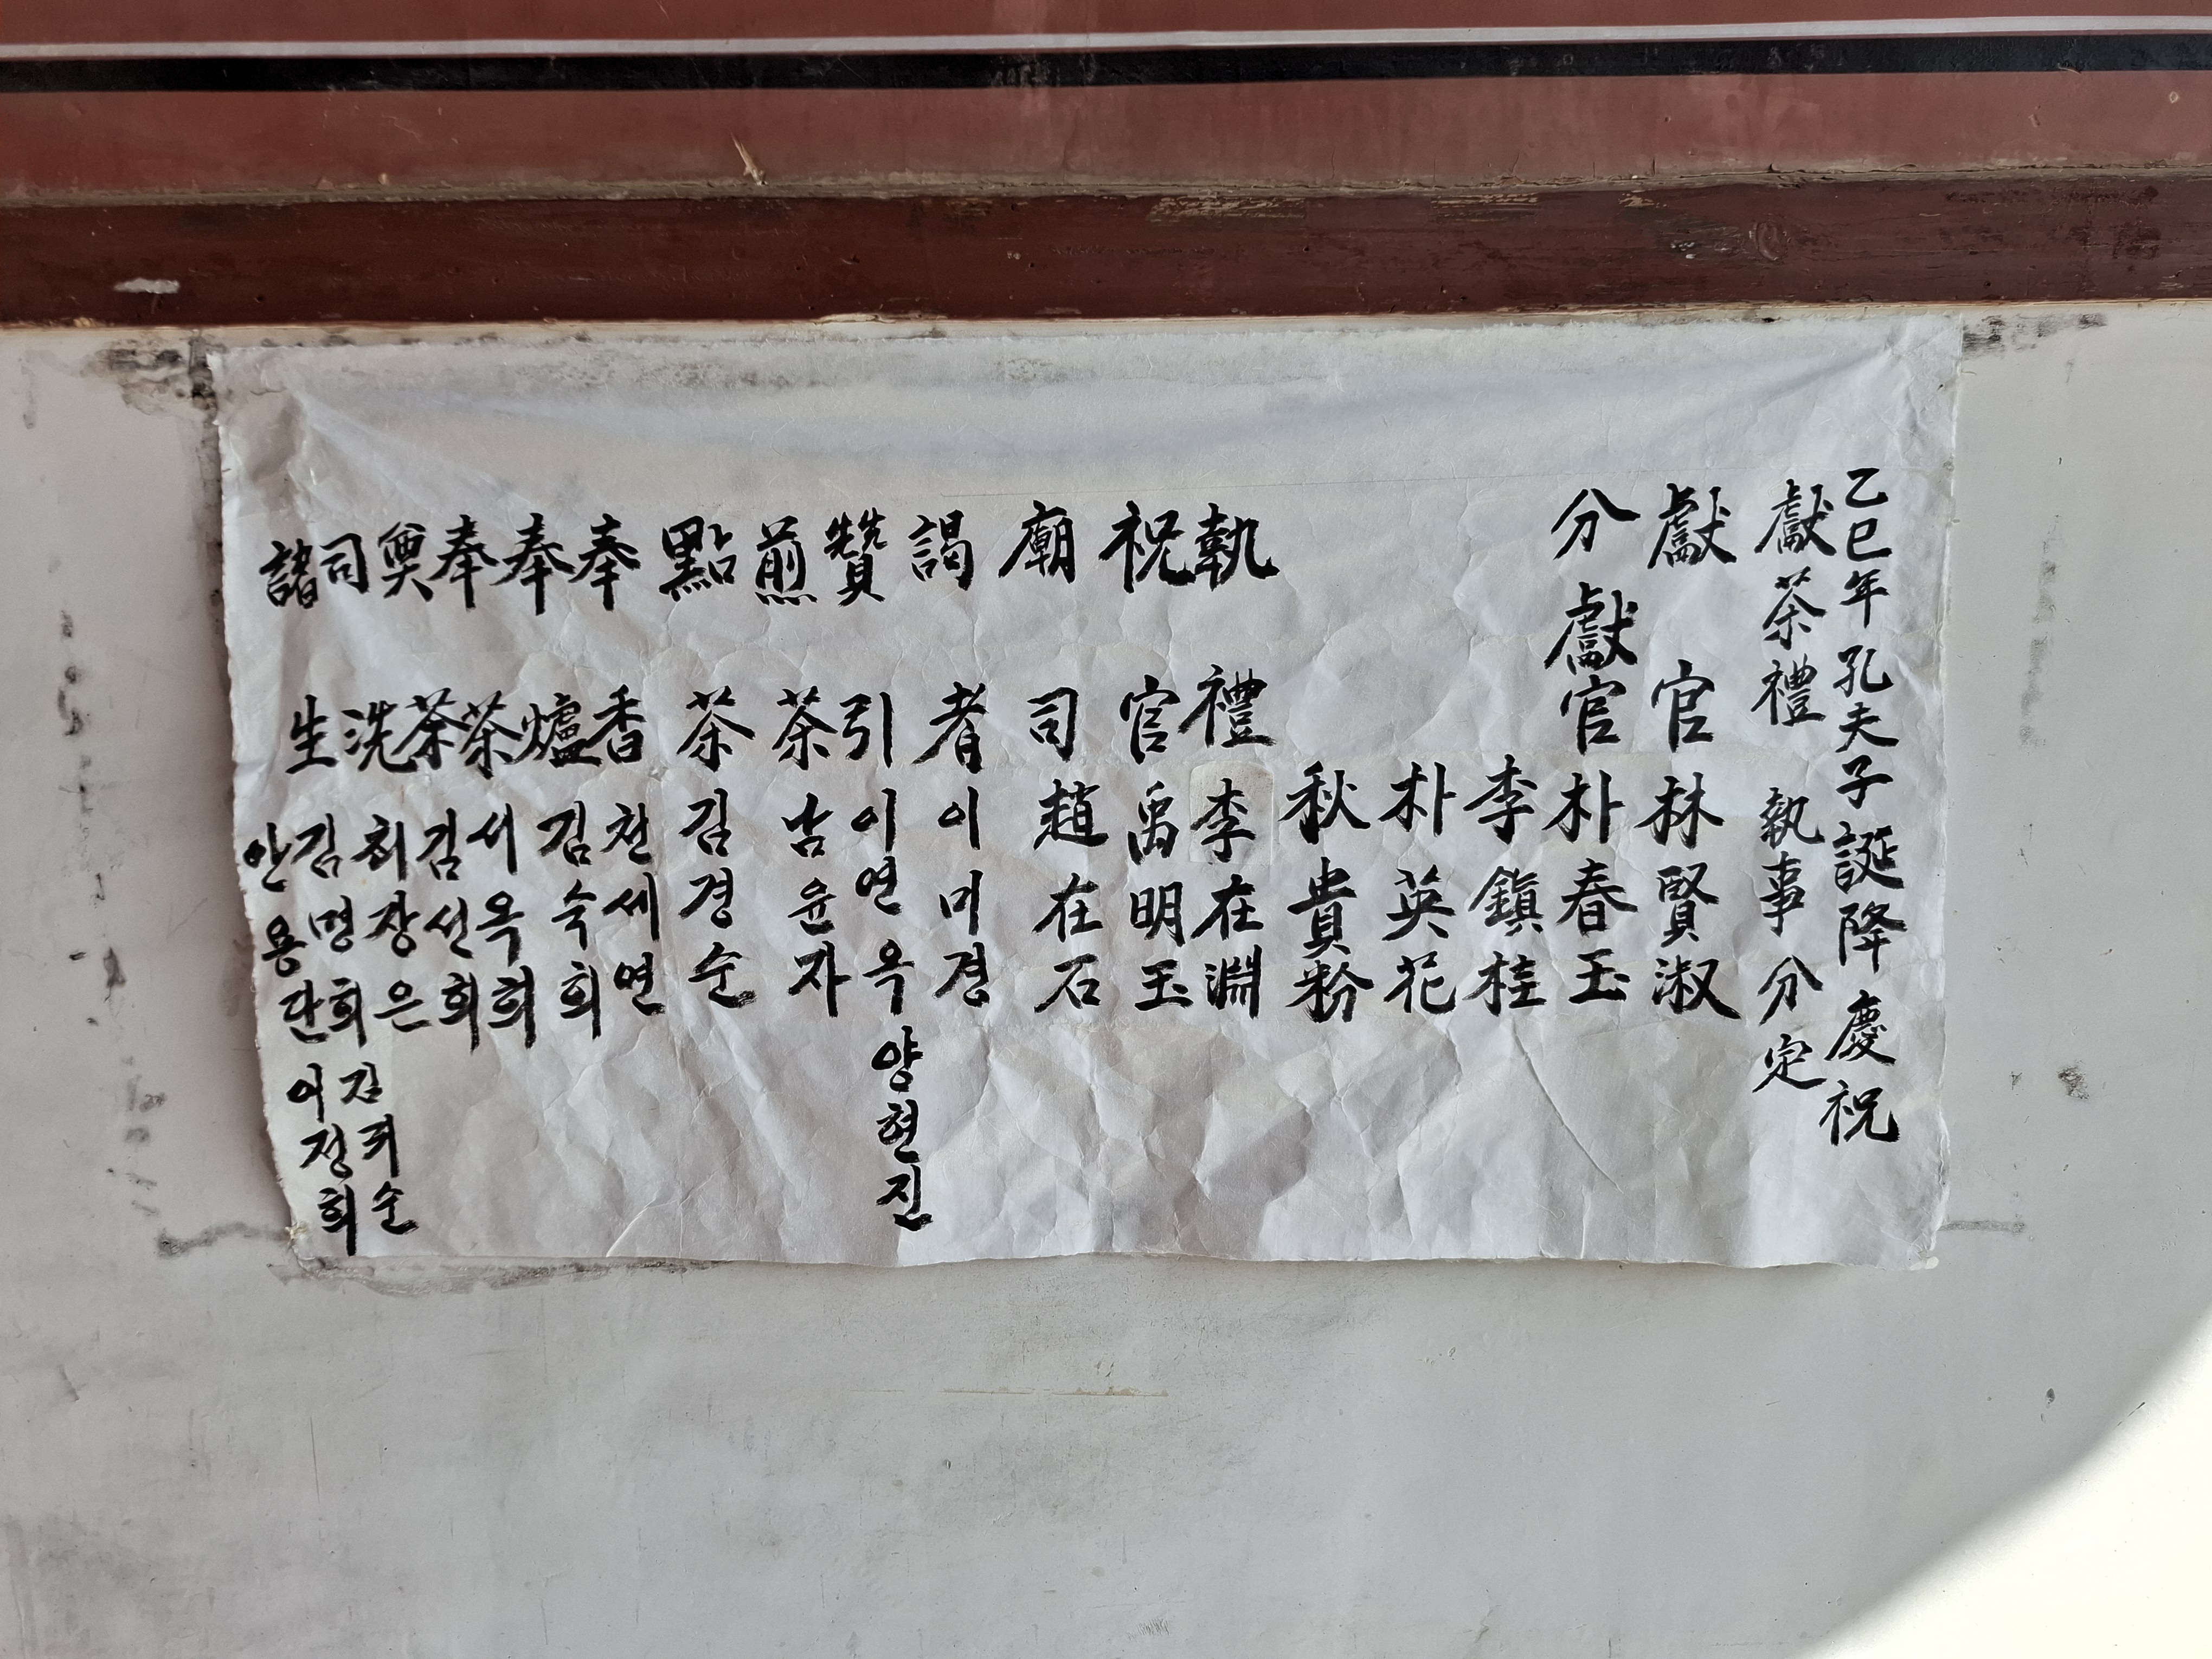 乙巳年孔夫子誕降慶祝
獻茶禮 執事分定
獻官 林賢淑
分獻官 朴春玉
李鎭桂
朴英花
秋貴粉
執禮 李在淵
祝官 禹明玉
廟司 趙在石
謁者 이미경
贊引 이연옥 양현진
煎茶 남윤자
點茶 김경순
奉香 천세연
奉爐 김숙희
奉茶 서옥희
奠茶 김선희
司洗 최장은
諸生 김명희 김귀순
안용단 여정희